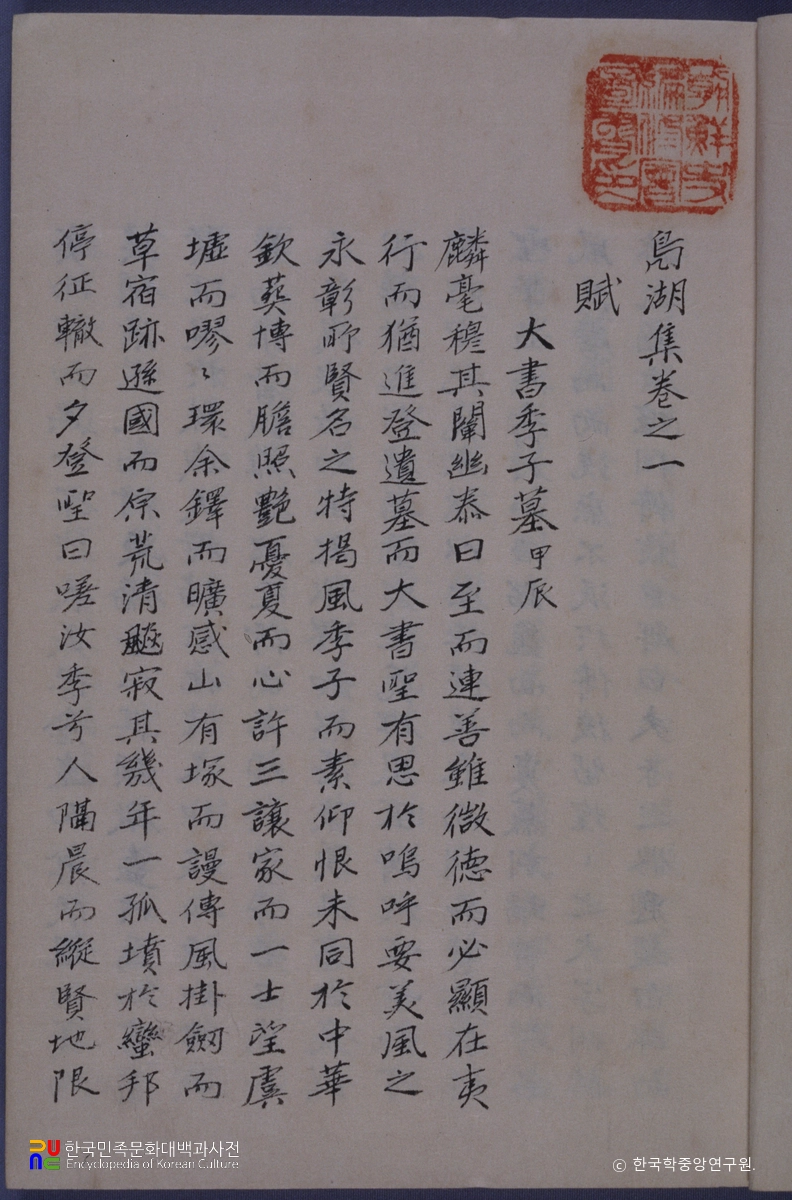 朝鮮史
編修會
圖書印
鳧湖集卷之一
賦
大書季子墓甲辰
麟毫穆其闡幽泰曰至而連善雖微德而必顯在夷
行而猶進登遺墓而大書聖有思於嗚呼要美風之
永彰所賢名之特揭風季子而素仰恨未同於中華
欽葬博而膽照艷憂夏而心許三讓家而一士望虞
墟而嘐〻環余鐸而曠感山有塚而謾傳風掛劒而
草宿跡遜國而原荒清飈寂其幾年一孤墳於蠻邦
停征轍而夕登聖曰嗟汝季兮人隔晨而縱賢地限
한국민족문화대백과사전
Encyclopedia of Korean Culture
ⓒ 한국학중앙연구원.